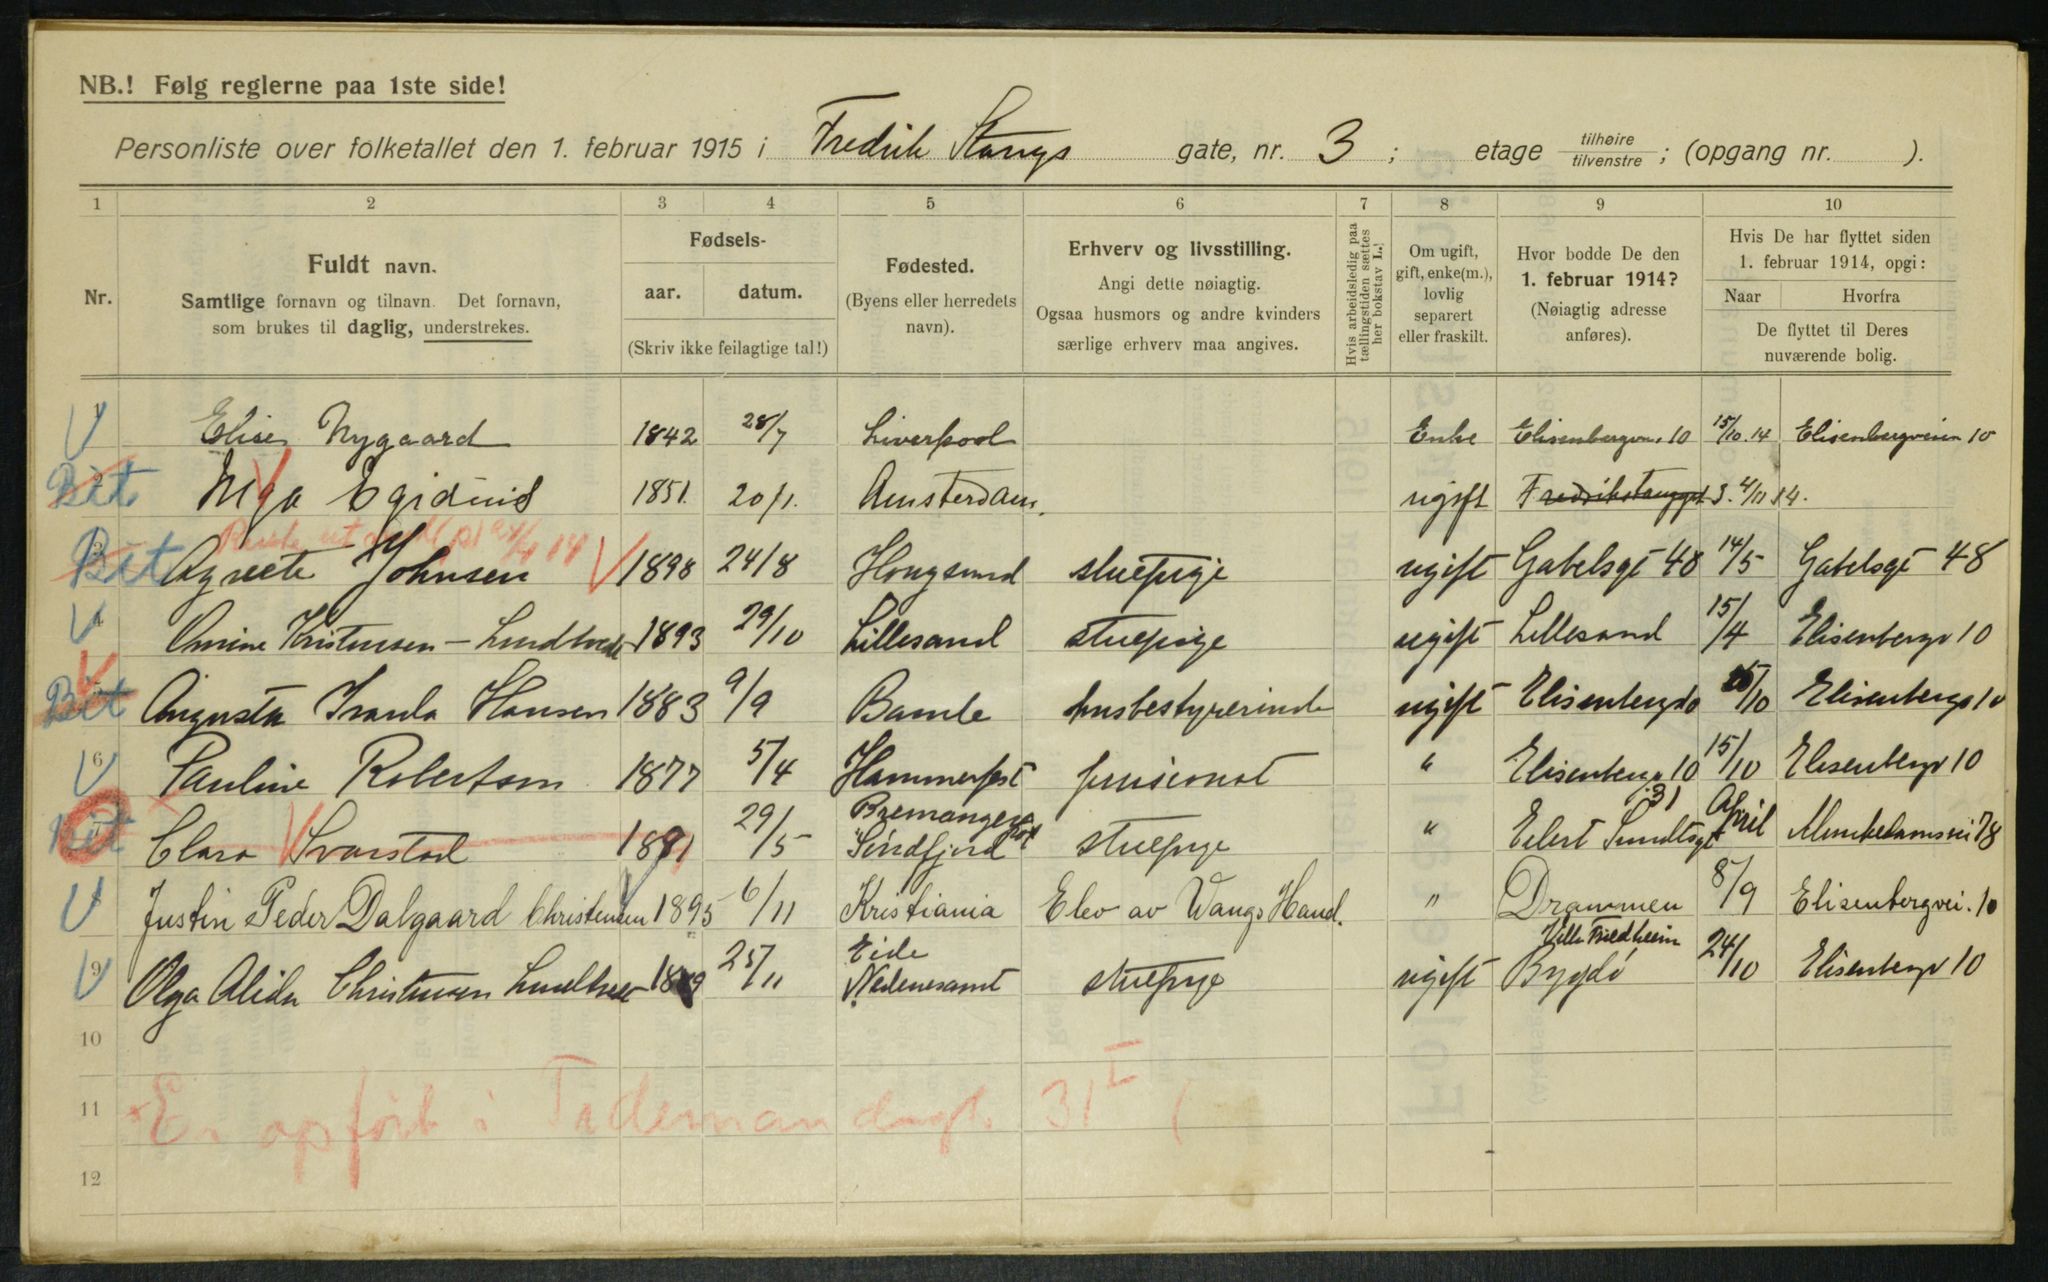 NB.! Følg reglerne paa 1ste side!
Personliste over folketallet den 1. februar 1915 i Fredrik Stangs gate, nr. 3 ; etage tilhøire tilvenstre ; (opgang nr. ).
1 2 3 4 5 6 7 8 9 10
Nr.
Fuldt navn.
Samtlige fornavn og tilnavn. Det fornavn,
som brukes til daglig, understrekes.
Fødsels-
aar. datum.
(Skriv ikke feilagtige tal!)
Fødested.
(Byens eller herredets
navn).
Erhverv og livsstilling.
Angi dette nøiagtig.
Ogsaa husmors og andre kvinders
særlige erhverv maa angives.
Hvis arbeidsledig paa
tællingstiden sættes
her bokstav L.!
Om ugift,
gift, enke(m.),
lovlig
separert
eller fraskilt.
Hvor bodde De den
1. februar 1914?
(Nøiagtig adresse
anføres).
Hvis De har flyttet siden
1. februar 1914, opgi:
Naar Hvorfra
De flyttet til Deres
nuværende bolig.
Elise Nygaard 1842 28/7 Liverpool Enke Elisenbergvn. 10 15/10.14 Elisenbergveien 10
Bet Egidius 1851. 20/1. Amsterdam. ugift Fredrikstangsgt 3. 4/11 14.
Bet Agnete Johnsen 1898 24/8 Hougsund stuepige ugift Gabelsgt 48 14/5 Gabelsgt 48
4 Kristensen - 1893 29/10 Lillesand stuepige ugift Lillesand 15/4 Elisenbergv 10
Bet Augusta Hansen 1883 9/9 Bamle husbestyrerinde ugift /10 Elisenbergv 10
6 Pauline Robertson 1877 5/4 Hammerfest pensionat " Elisenbergv 10 15/10 Elisenbergv 10
Clara Svarstad 1891 29/5 Bremanger Söndfjord stuepige " Eilert Sundtsgt 31 April Munkedamsvei 78
Justin Peder Dalgaard Christensen 1895 6/11 Kristiania Elev av Wangs Hand. " Drammen 8/9 Elisenbergvei. 10
9 Olga Alida Christensen 25/11 Eide Nedenesamt stuepige ugift Villa Bygdö 24/10 Elisenbergv 10
10
11 Er opført i Tidemandsgt. 31 I
12